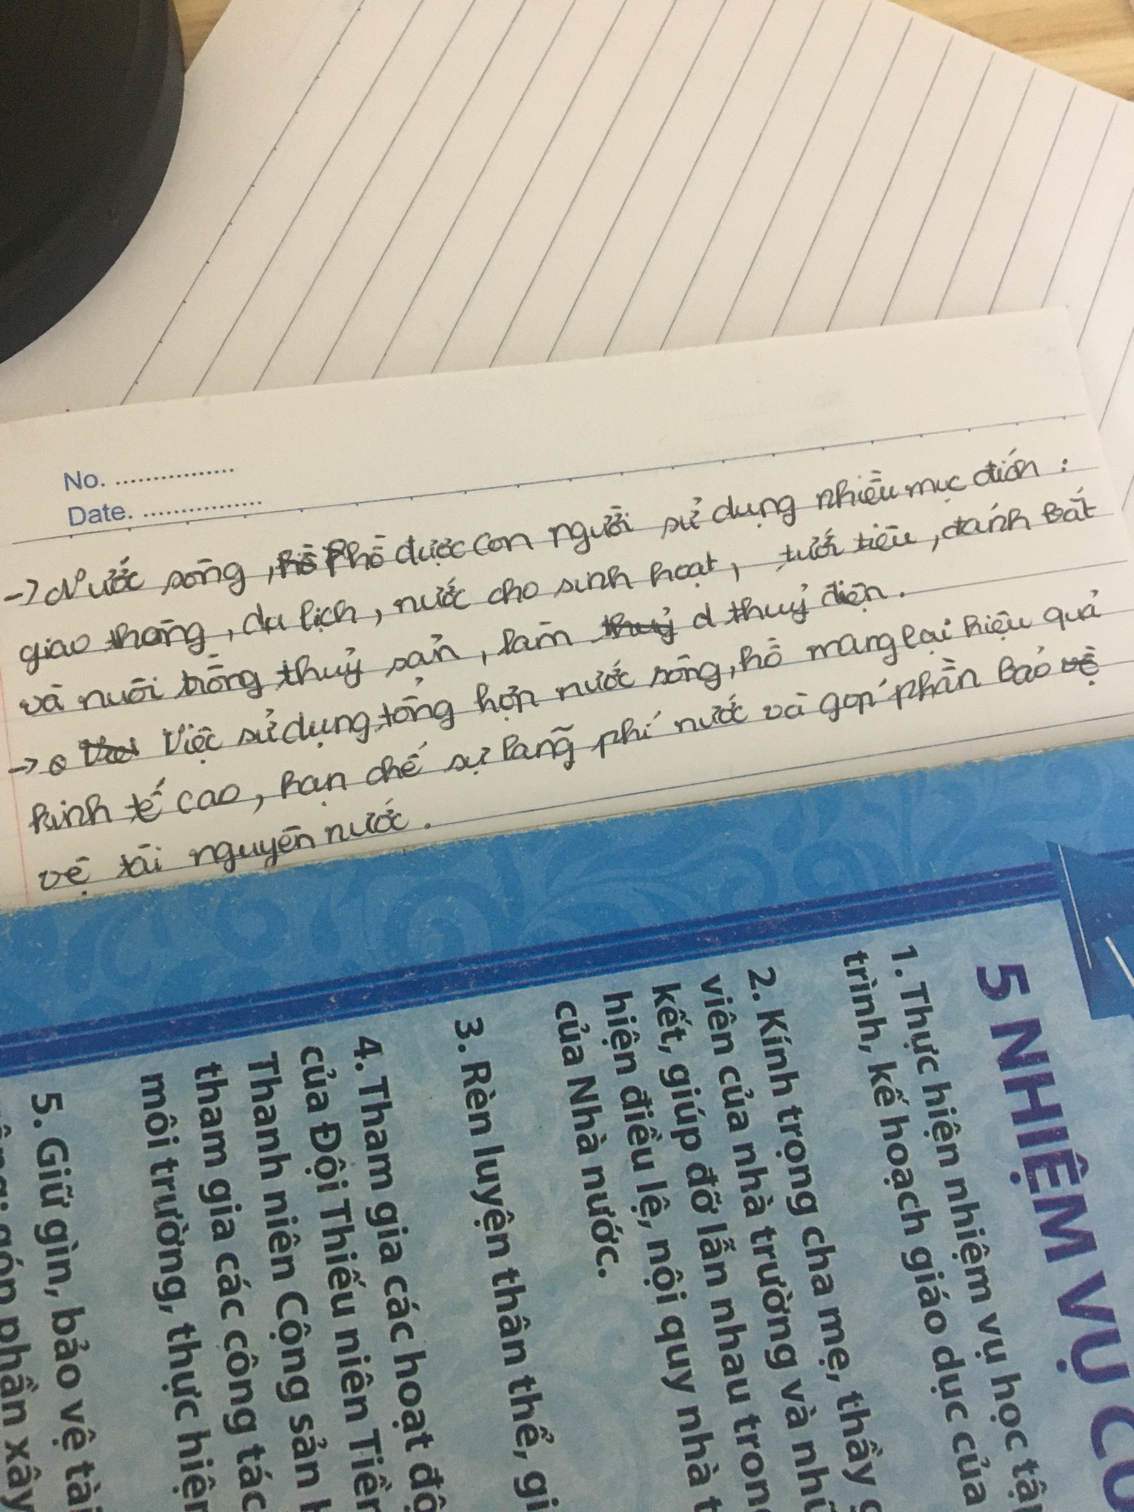 No.
Date.
→ Nước sông, hồ được con người sử dụng nhiều mục đích:
giao thông, du lịch, nước cho sinh hoạt, tưới tiêu, đánh bắt
và nuôi trồng thuỷ sản, làm thuỷ điện.
→ Việc sử dụng tổng hợp nước sông, hồ mang lại hiệu quả
kinh tế cao, hạn chế sự lãng phí nước và góp phần bảo
vệ tài nguyên nước.
5 NHIỆM VỤ
1. Thực hiện nhiệm vụ học
trình, kế hoạch giáo dục của
2. Kính trọng cha mẹ, thầy
viên của nhà trường và
kết, giúp đỡ lẫn nhau
hiện điều lệ, nội quy nhà
của Nhà nước.
3. Rèn luyện thân thể,
4. Tham gia các hoạt
của Đội Thiếu niên
Thanh niên Cộng sản
tham gia các công tác
môi trường, thực
5. Giữ gìn, bảo vệ
phần